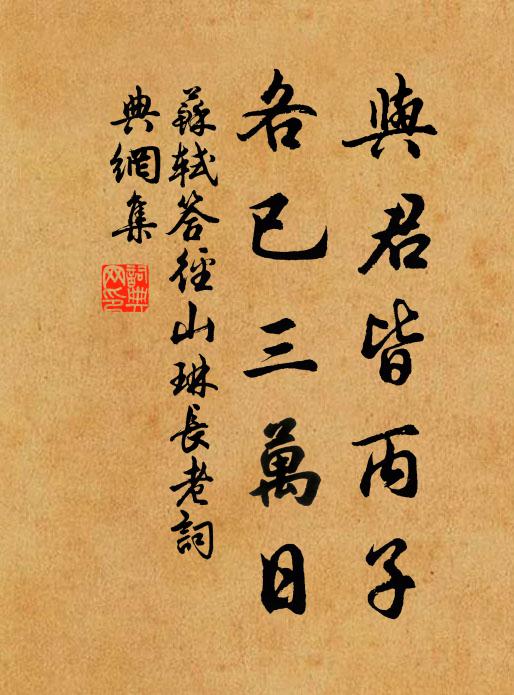 與君皆丙子
各已三萬日
蘇軾答徑山琳長老詞
典網集
詞典
网印